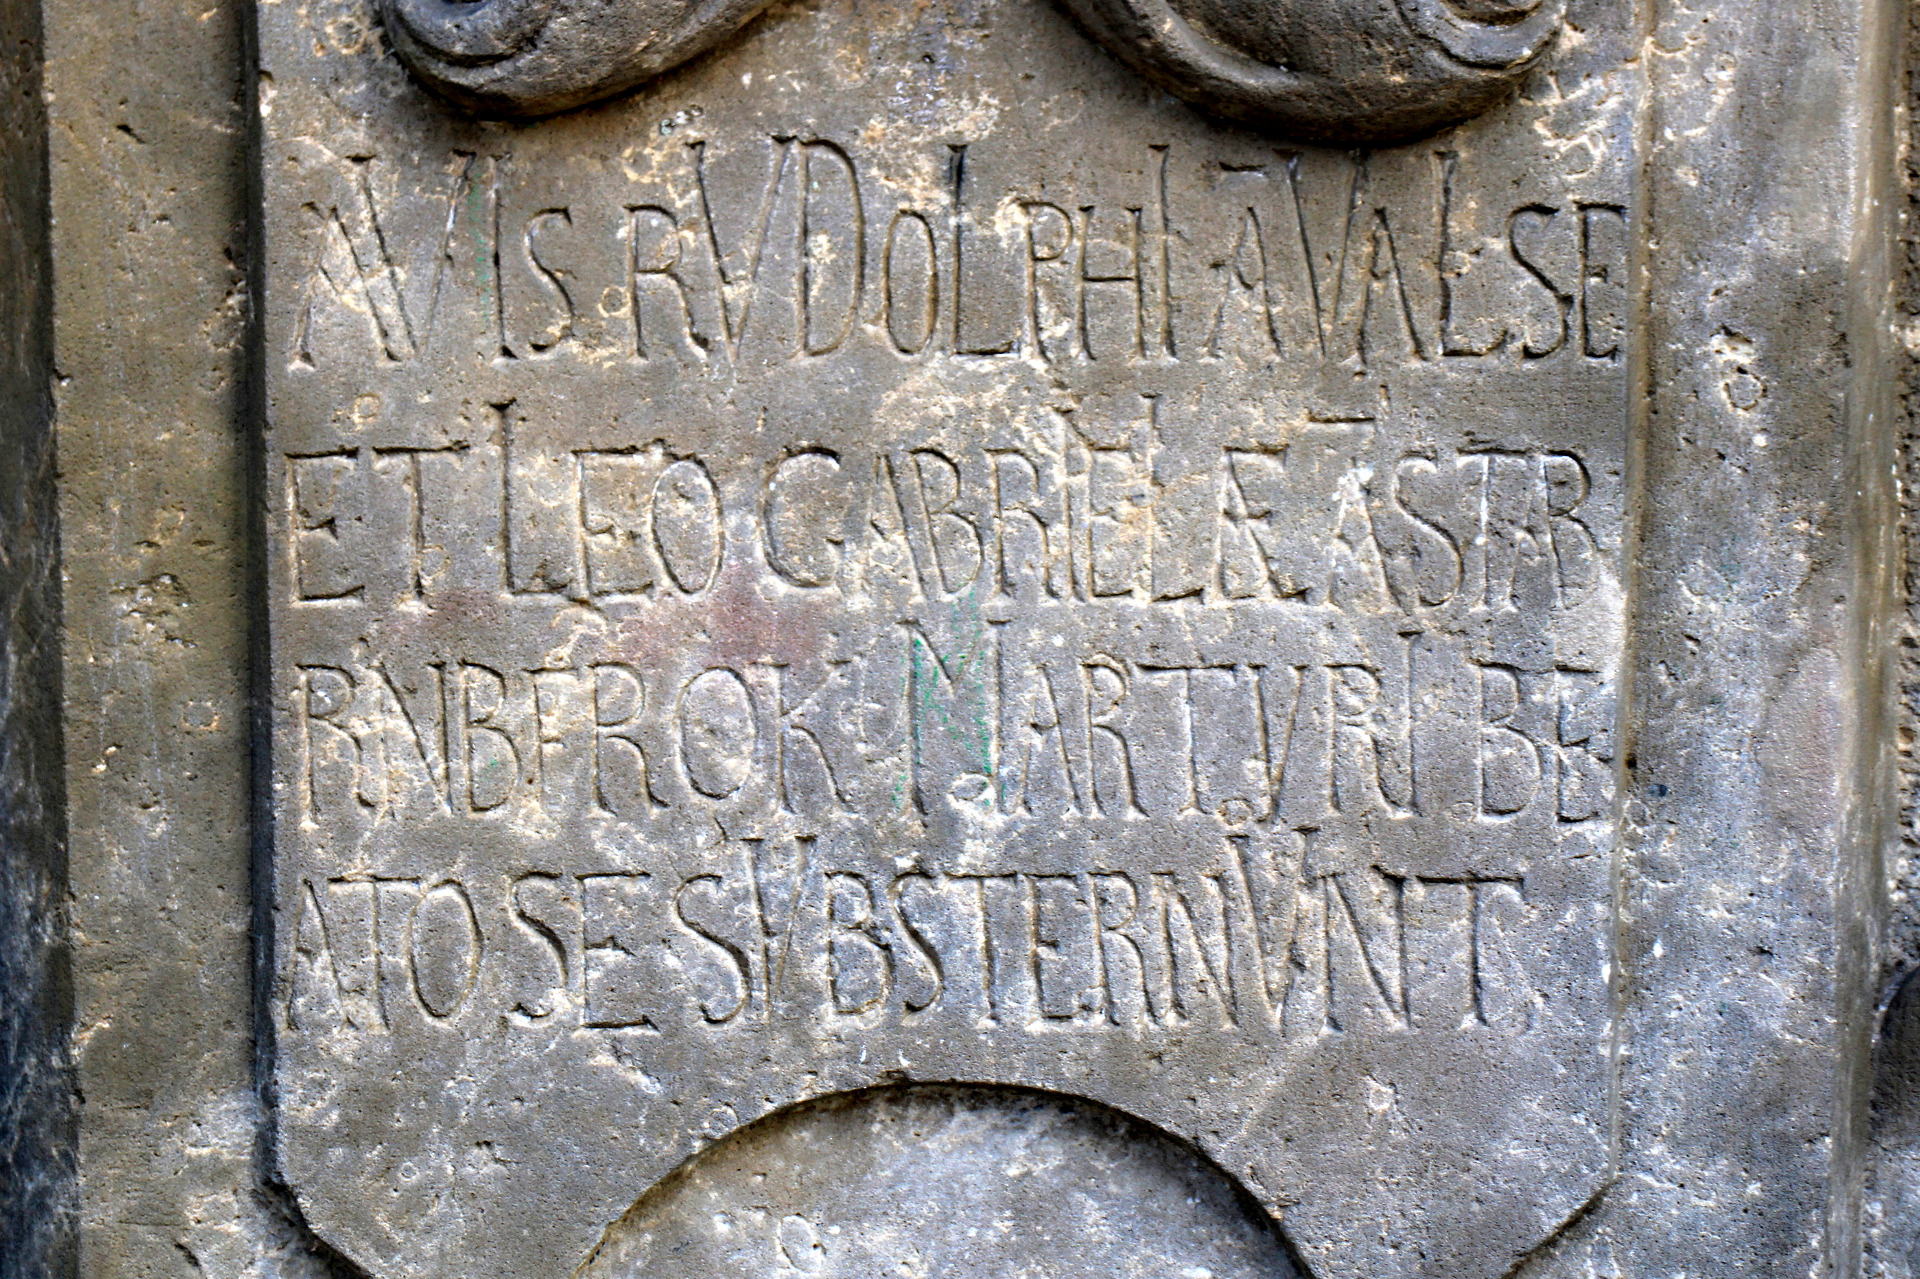 AVIS RVDOLPHI A VALSE
ET LEO GABRIELÆ Ā STAR
RNBEROK MARTYRI BE
ATO SE SVBSTERNVNT